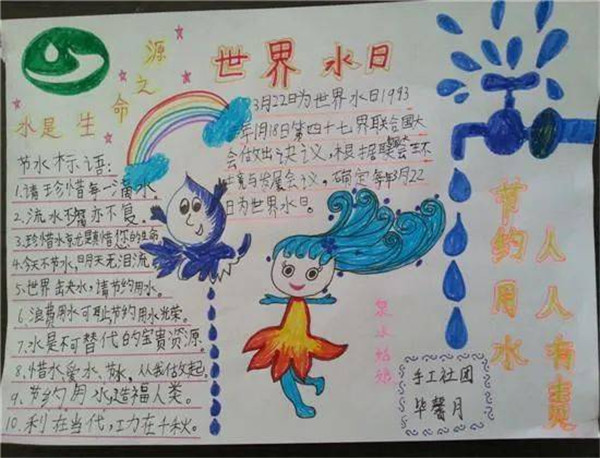 世界水日
水是生命之源
3月22日为世界水日1993
年1月18日第四十七界联合国大
会做出决议，根据联合
发展会议，确定每年3月22
日为世界水日。
节水标语：
1、请珍惜每一滴水。
2、流水不腐亦不复。
3、珍惜水就是珍惜您的生命
4、今天不节水，明天无泪流
5、世界缺水，请节约用水。
6、浪费用水可耻节约用水光荣。
7、水是不可替代的宝贵资源
8、惜水、爱水、节水，从我做起。
9、节约用水，造福人类。
10、利在当代，功在千秋。
泉水姑娘
手工社团
毕馨月
节约用水
人人有责